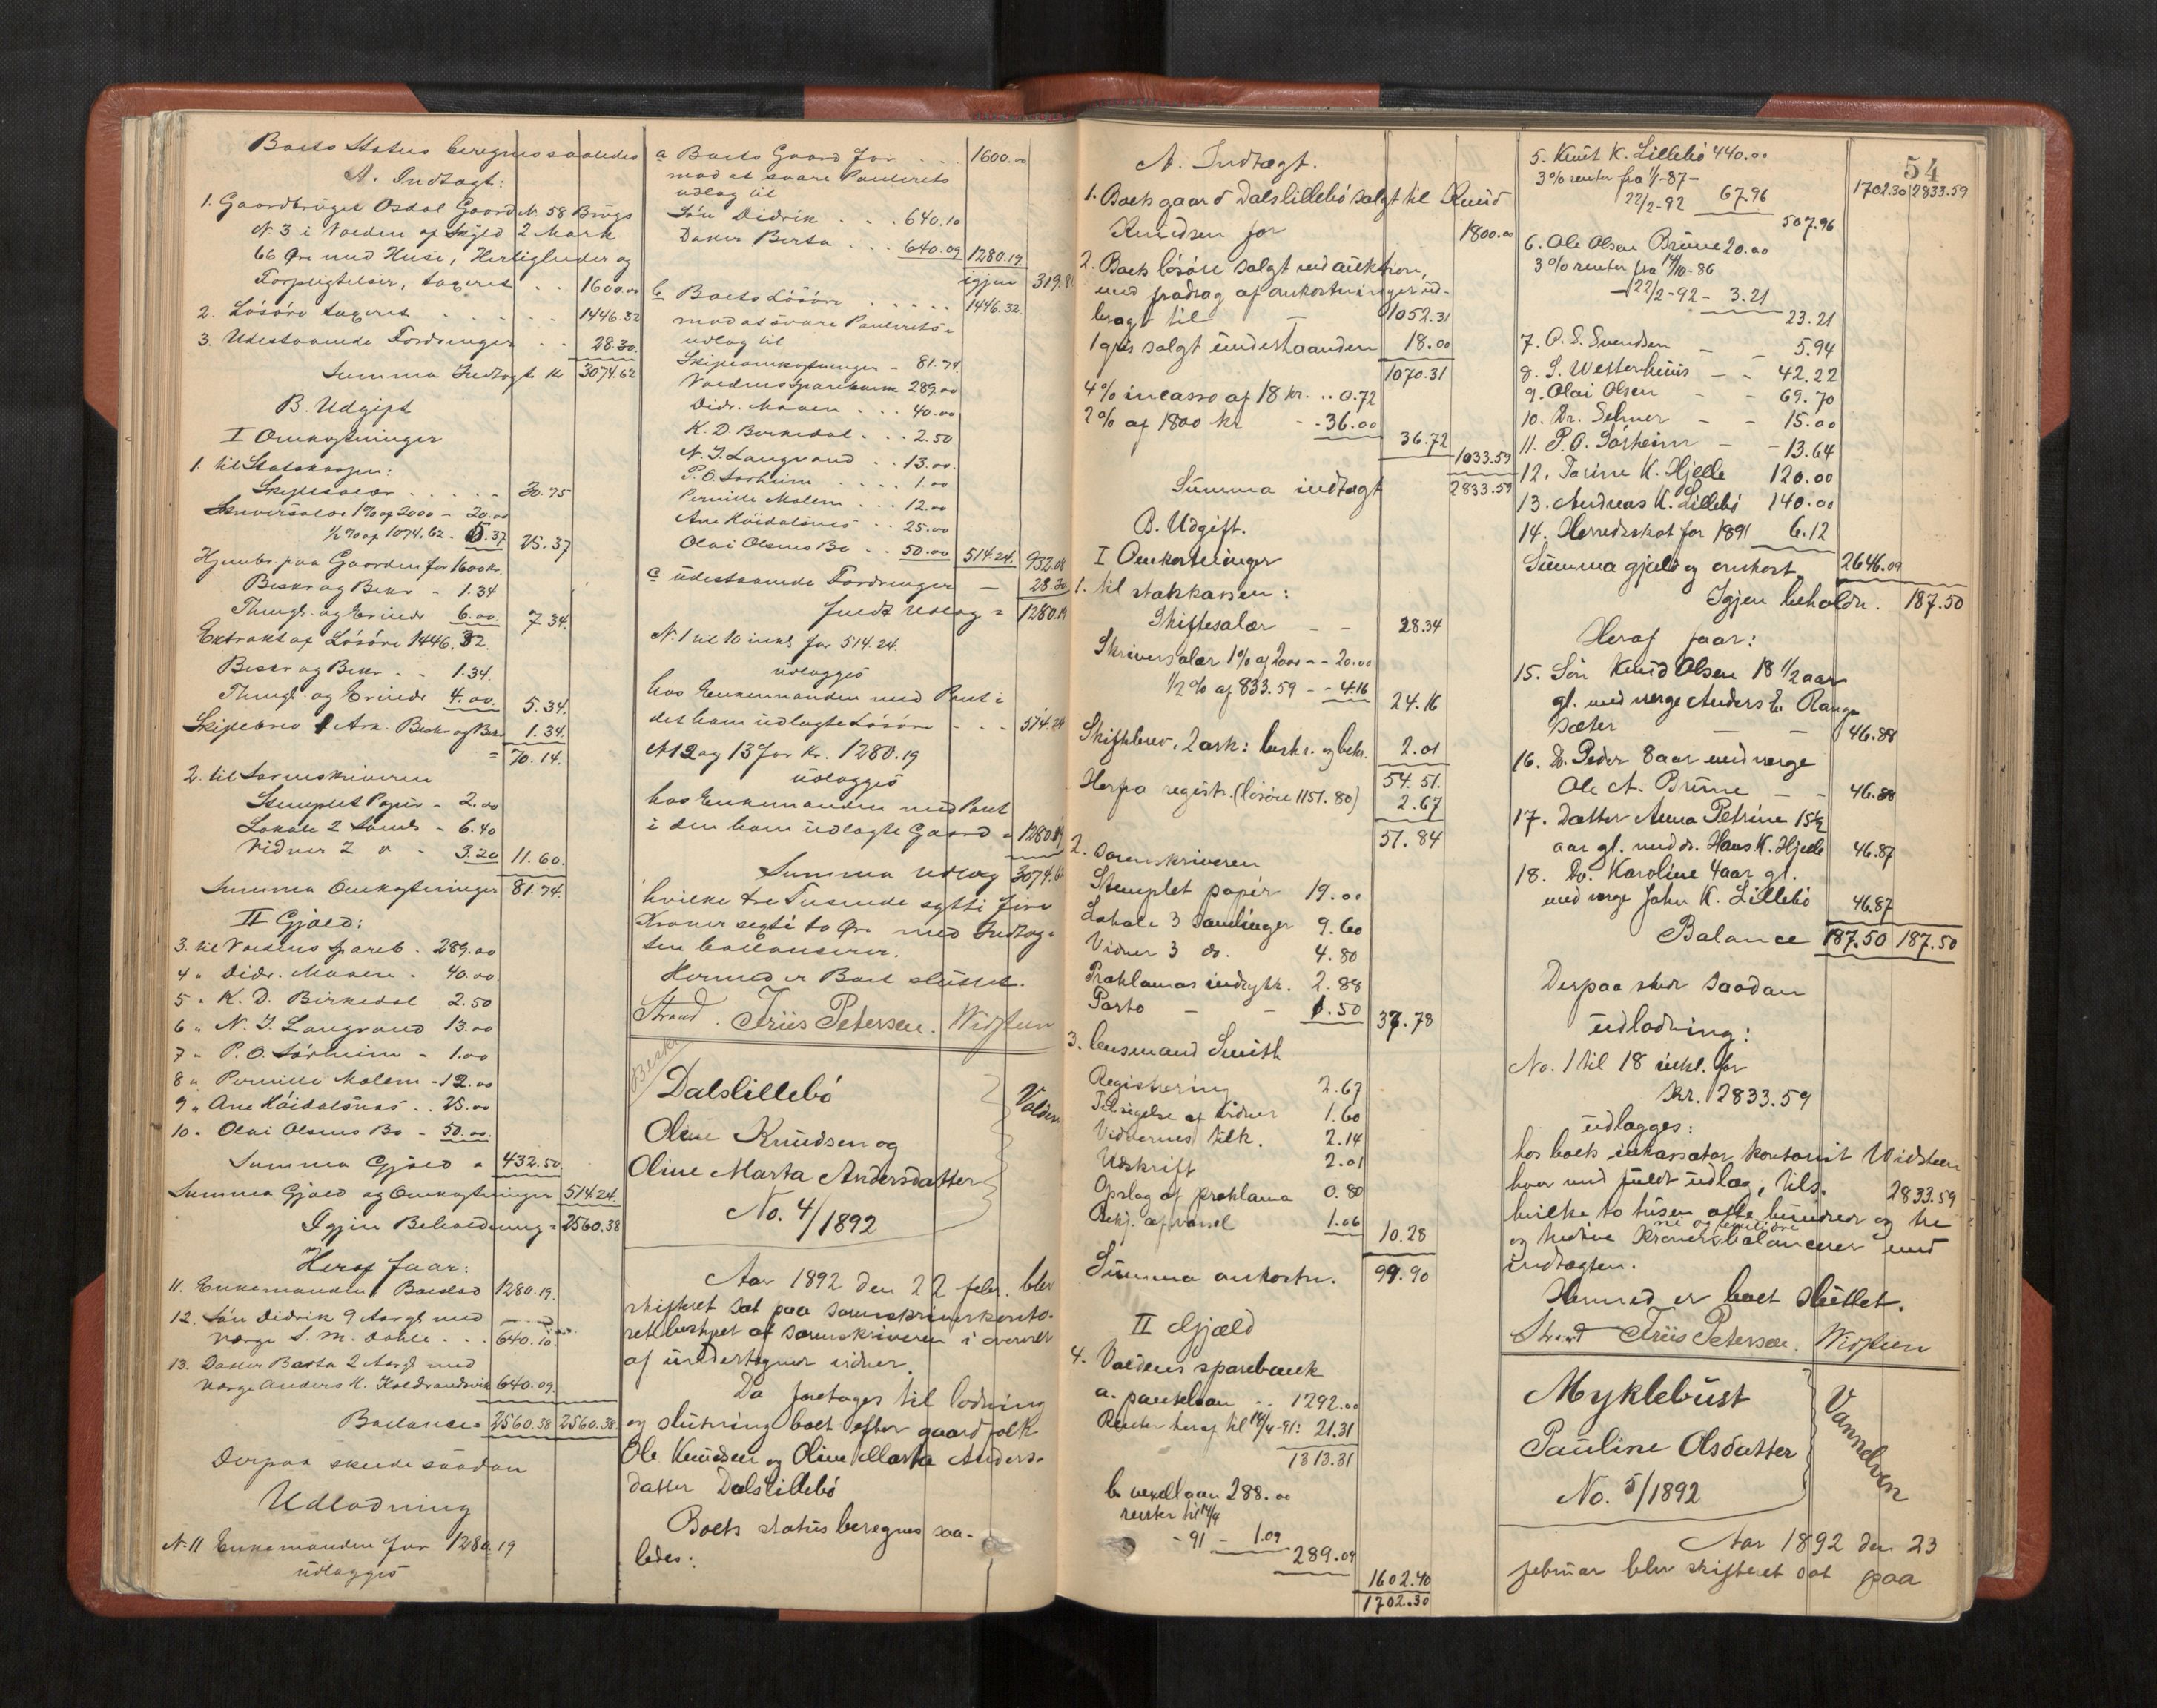 Boets Status beregnes saaledes
A. Indtægt:
1. Gaardbruget Osdal Gaard N. 58 Brugs
N. 3 i Volden af Skyld 2 Mark
66 Øre med Huse, Herligheder og
Forpligtelser, taxeret . . 1600.00
2. Lösöre taxeret . . . . . 1446.32
3. Udestaaende Fordringer . . 28.30.
Summa Indtægt Kr 3074.62
B. Udgift
I Omkostninger
1. til Statskassen:
Skiftesalær . . . . . 30.75
Skriversalær 1% af 2000 - 20.00
½% af 1074.62 - 5.37 25.37
Hjembr. paa Gaarden for 1600 kr.
Beskr og Bekr - 1.34
Thingl. og Erinde 6.00. 7.34.
Extrakt af Lösöre 1446.32.
Beskr og Bekr . - 1.34.
Thingl. og Erinde 4.00. 5.34.
Skiftebrev 1 Ark. Beskr og Bekr 1.34.
= 70.14.
2. til Sorenskriveren
Stemplet Papir - 2.00
Lokale 2 Saml. - 6.40
Vidner 2 " - 3.20 11.60.
Summa Omkostninger 81.74.
II Gjæld:
3. til Voldens spareb. - 289.00
4 " Didr. Maaen . 40.00
5 " K. D. Birkedal 2.50
6 " N. J. Langvand 13.00
7 " P. O. Sörheim - 1.00
8 " Pernille Molem - 12.00
9 " Ane Höidalsnes . . 25.00
10 " Olai Olsens Bo - 50.00.
Summa Gjæld = 432.50
Summa Gjæld og Omkostninger 514.24.
Igjen Beholdning = 2560.38
Heraf faar:
11. Enkemanden Boeslod 1280.19.
12. Sön Didrik 9 Aar gl med
værge S. M. Dahle . . . 640.10
13. Datter Berta 2 Aar gl med
værge Anders K. 640.09.
Ballance = 2560.38 2560.38.
Derpaa skeede saadan
Udlodning
N. 11 Enkemanden for 1280.19
udlægges
a Boets Gaard for . . . 1600.00
mod at svare Panterets
udlæg til
Sön Didrik . . . 640.10
Datter Berta . . . 640.09 1280.19
igjen 319.81
b Boets Lösöre . . . . 1446.32.
mod at svare Panterets=
udlæg til
Skifteomkostninger - 81.74.
Voldens Sparebank 289.00
Didr. Maaen . . . 40.00
K. D. Birkedal . . . 2.50
N. J. Langvand . . 13.00.
P. O. Sörheim . . . . 1.00
Pernille Molem . . . 12.00
Ane Höidalsnes . . 25.00
Olai Olsens Bo . . 50.00 514.24. 932.08
c udestaaende Fordringer — 28.30
fuldt Udlæg = 1280.19
N. 1 til 10 inkl for 514.24.
udlægges
hos Enkemanden med Pant i
det ham udlagte Lösöre - - . 514.24
N 12 og 13 for Kr. 1280.19
udlægges
hos Enkemanden med Pant
i den ham udlagte Gaard = 1280.19
Summa Udlæg 3074.62
hvilke tre Tusende sytti fire
Kroner segti to Øre med Indtæg=
ten ballancerer.
Hermed er Boet sluttet.
Strand. Friis Petersen. Widsteen
Beskr
Dalslillebö
Olene Knudsen og
Oline Marta Andersdatter
No. 4/1892
Volden
Aar 1892 den 22 febr. blev
skifteret sat paa sorenskriverkonto-
ret bestyret af sorenskriveren i overvær
af undertegnede vidner.
Da foretages til lodning
og slutning boet efter gaardfolk
Ole Knudsen og Oline Marta Anders-
datter Dalslillebö
Boets status beregnes saa-
ledes:
54
A. Indtægt.
1. Boets gaard Dalslillebö solgt til Knud
Knudsen for 1800.00
2. Boets lösöre solgt ved auktion,
med fradrag af omkostninger ud-
bragt til — 1052.31
1 gris solgt underhaanden 18.00
1070.31
4% incasso af 18 kr. . . 0.72
2% af 1800 kr - - 36.00
36.72 1033.59
Summa indtægt 2833.59
B. Udgift.
I Omkostninger
1. til statskassen:
Skiftesalær — — 28.34
Skriversalær 1% af 2000 - - 20.00
1/2% af 833.59 - - 4.16 24.16
Skiftebrev, 2 ark: beskr. og bekr. 2.01
54.51.
Herpa registr. (lösöre 1151.80) 2.67
57.84
2. sorenskriveren
Stemplet papir 19.00
Lokale 3 samlinger 9.60
Vidner 3 do. 4.80
Proklamas indrykk. 2.88
Porto — — 1.50 37.78
3. lensmand Smith
Registrering 2.67
Tilsigelse af vidner 1.60
Vidnernes tilk. 2.14
Udskrift 2.01
Opslag af proklama 0.80
Bekj. af varsel 1.06 10.28
Summa omkostn. 99.90
II Gjæld
4. Voldens sparebank
a. pantelaan . . 1292.00
Renter heraf til 14/4-91: 21.31
1313.31
b. vexellaan 288.00
renter til 14/4
- 91 — 1.09
289.09
1602.40
1702.30
5. Knut K. Lillebö 440.00 1702.30 2833.59
3% renter fra 1/1-87 -
22/2-92 67.96
507.96
6. Ole Olsen Brune 20.00
3% renter fra 14/10-86
- 22/2-92 - 3.21
23.21
7. O. S. Svendsen — — 5.94
8. S. Westerhuus — - 42.22
9. Olai Olsen - - 69.70
10. Dr. Selmer — — 15.00
11. P. O. Sørheim — - 13.64
12. Tarine K. Hjelle 120.00
13. Andreas K. Lillebö 140.00
14. Herredsskat for 1891 6.12
Summa gjæld og omkost. 2646.09
Igjen beholdn. 187.50
Heraf faar:
15. Sön Knud Olsen 18 1/2 aar
gl. med værge Anders E. Rang-
sæter — — 46.88
16. D. Peder 8 aar med værge
Ole A. Brune — - 46.88
17. Datter Anna Petrine 15½
aar gl. med do. Hans K. Hjelle 46.87
18. Do. Karoline 4 aar gl.
med værge John K. Lillebö 46.87
Balance 187.50 187.50
Derpaa sker saadan
udlodning:
No. 1 til 18 inkl. for
kr. 2833.59
udlægges:
hos boets inkassator, kontorist Widsteen
hver med fuldt udlæg, tils. 2833.59
hvilke to tusen otte hundrede og tre
og tredive kroner ni og femti øre balancerer med
indtægten.
Hermed er boet sluttet.
Strand Friis Petersen. Widsteen
Myklebust
Pauline Olsdatter
No. 5/1892
Vannelven
Aar 1892 den 23
februar blev skifteret sat paa